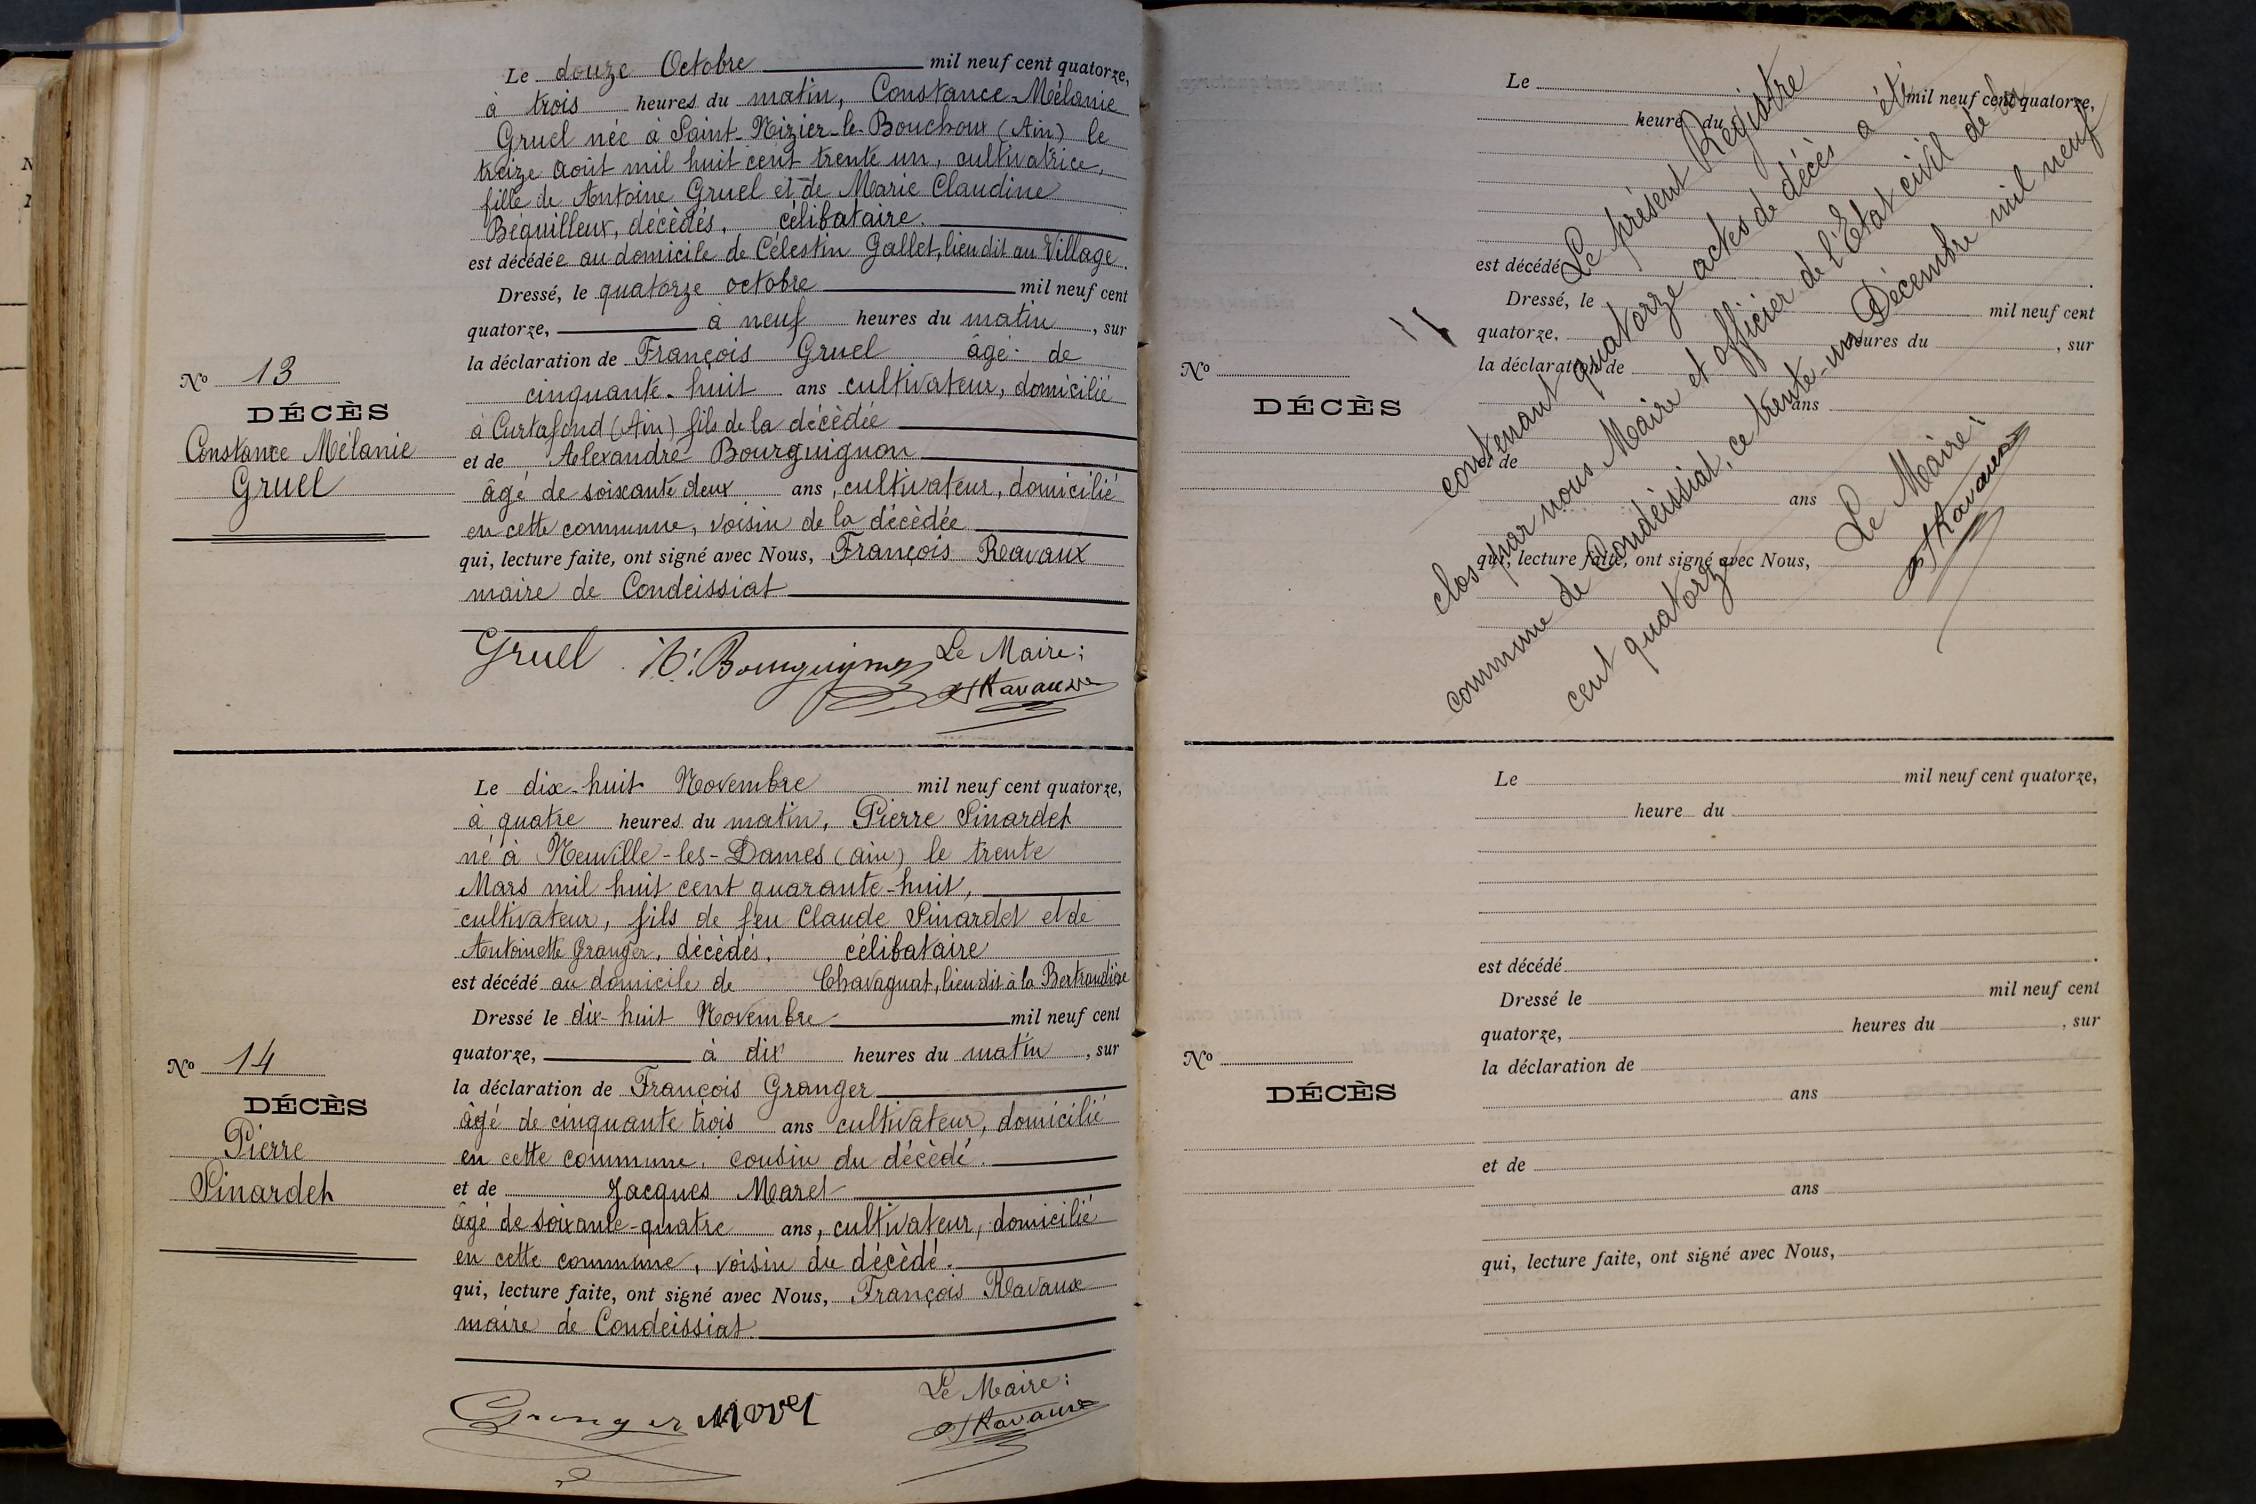 Le douze Octobre mil neuf cent quatorze,
à trois heures du matin, Constance Mélanie
Gruel née à Saint-Nizier-le-Bouchoux (Ain) le
treize août mil huit cent trente un, cultivatrice,
fille de Antoine Gruel et de Marie Claudine
Béquilleux, décèdés, célibataire.
est décédée au domicile de Célestin Gallet, lieu dit au Village.
Dressé, le quatorze octobre mil neuf cent
quatorze, à neuf heures du matin, sur
la déclaration de François Gruel âgé de
cinquante-huit ans cultivateur, domicilié
à Curtafond (Ain) fils de la décèdée
et de Alexandre Bourguignon
âgé de soixante deux ans, cultivateur, domicilié
en cette commune, voisin de la décèdée
qui, lecture faite, ont signé avec Nous, François Ravaux
maire de Condeissiat
Gruel Bourguignon Le Maire:
Ravaux
No 13
DÉCÈS
Constance Mélanie
Gruel
Le dix-huit Novembre mil neuf cent quatorze,
à quatre heures du matin, Pierre Pinardet
né à Neuville-les-Dames (ain) le trente
Mars mil huit cent quarante-huit,
cultivateur, fils de feu Claude Pinardet et de
Antoinette Granger, décèdés, célibataire
est décédé au domicile de Chavagnat, lieu dit à la Bertrandière
Dressé le dix-huit Novembre mil neuf cent
quatorze, à dix heures du matin, sur
la déclaration de François Granger
âgé de cinquante trois ans cultivateur, domicilié
en cette commune, cousin du décèdé.
et de Jacques Morel
âgé de soixante-quatre ans, cultivateur, domicilié
en cette commune, voisin du décèdé.
qui, lecture faite, ont signé avec Nous, François Ravaux
maire de Condeissiat
Granger Morel Le Maire:
Ravaux
No 14
DÉCÈS
Pierre
Pinardet
Le mil neuf cent quatorze,
heure du
est décédé
Dressé, le mil neuf cent
quatorze, heures du , sur
la déclaration de
ans
et de
ans
qui, lecture faite, ont signé avec Nous,
No
DÉCÈS
Le présent Registre
contenant quatorze actes de décès a été
clos par nous Maire et officier de l'Etat civil de la
commune de Condeissiat, ce trente-un Décembre mil neuf
cent quatorze
Le Maire:
Ravaux
Le mil neuf cent quatorze,
heure du
est décédé
Dressé le mil neuf cent
quatorze, heures du , sur
la déclaration de
ans
et de
ans
qui, lecture faite, ont signé avec Nous,
No
DÉCÈS